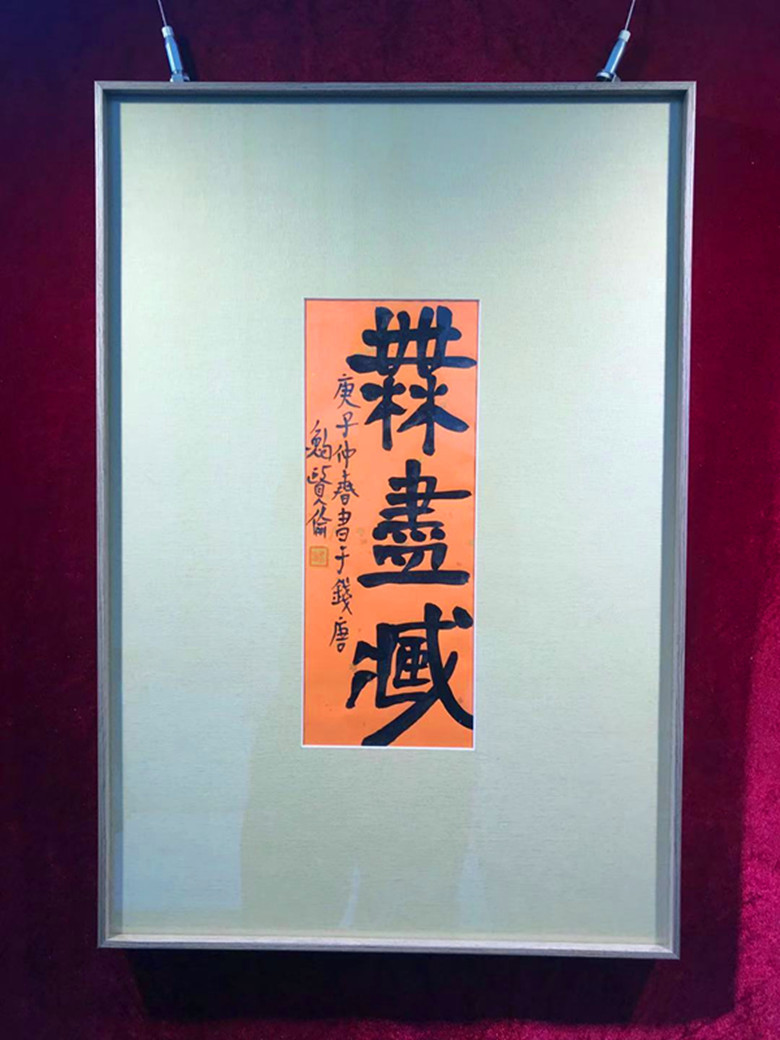 無盡臧
庚子仲春書于錢唐
鮑賢倫